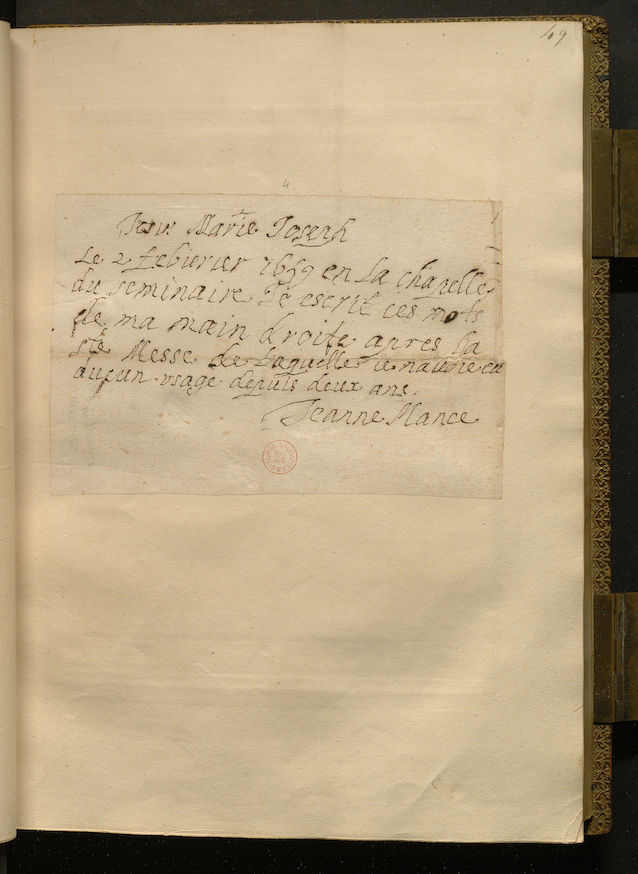 49
4
Jesus Marie Joseph
Le 2 febierier 1659 en La chapelle
du seminaire Je escrit ces mots
de ma main droite apres la
Ste Messe de Laquelle ie navoie eu
aucun vsage depuis deux ans.
Jeanne Mance